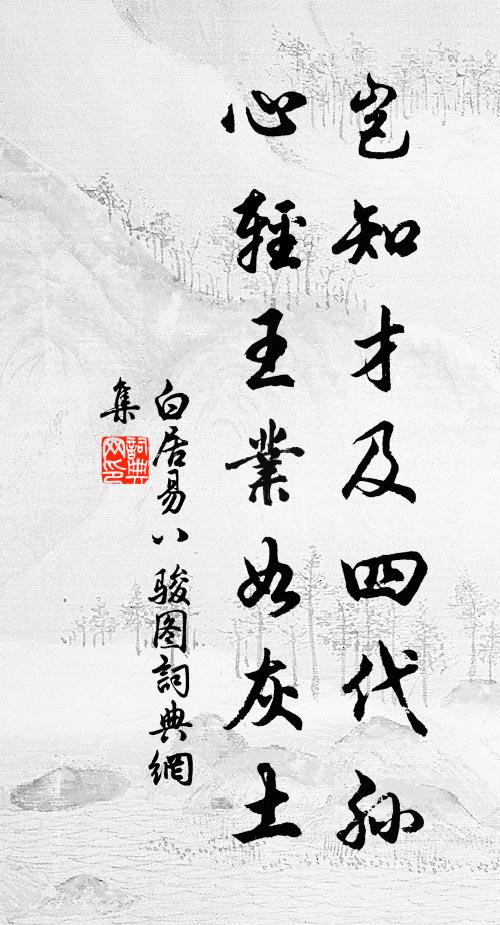 岂知才及四代孙
心輕王業如灰土
白居易八駿图詞典網
集
詞典网印